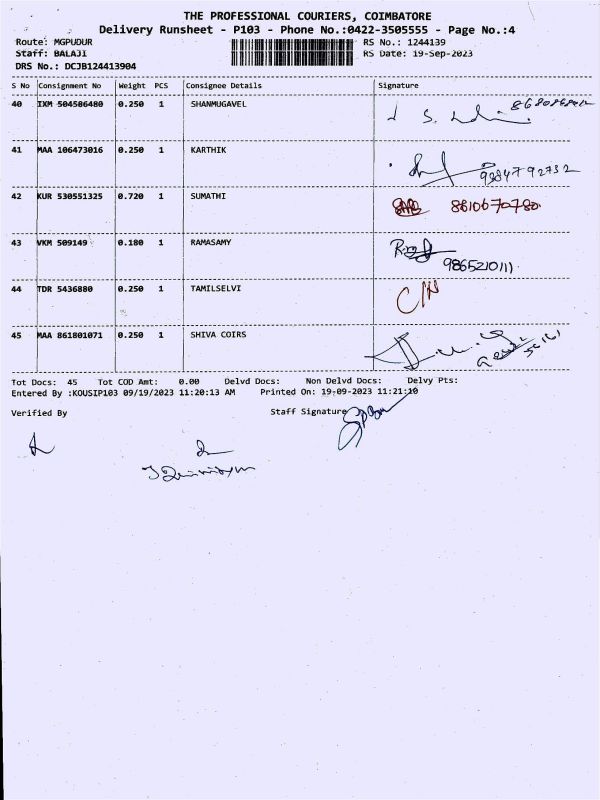 THE PROFESSIONAL COURIERS, COIMBATORE
Delivery Runsheet - P103 - Phone No.:0422-3505555 - Page No.:4
Route: MGPUDUR RS No.: 1244139
Staff: BALAJI RS Date: 19-Sep-2023
DRS No.: DCJB124413904
S No Consignment No Weight PCS Consignee Details Signature
40 IXM 504586480 0.250 1 SHANMUGAVEL
41 MAA 106473016 0.250 1 KARTHIK
9884792732
42 KUR 530551325 0.720 1 SUMATHI 8610670780
43 VKM 509149 0.180 1 RAMASAMY
9865210111
44 TDR 5436880 0.250 1 TAMILSELVI
45 MAA 861801071 0.250 1 SHIVA COIRS
Tot Docs: 45 Tot COD Amt: 0.00 Delvd Docs: Non Delvd Docs: Delvy Pts:
Entered By :KOUSIP103 09/19/2023 11:20:13 AM Printed On: 19-09-2023 11:21:10
Verified By Staff Signature